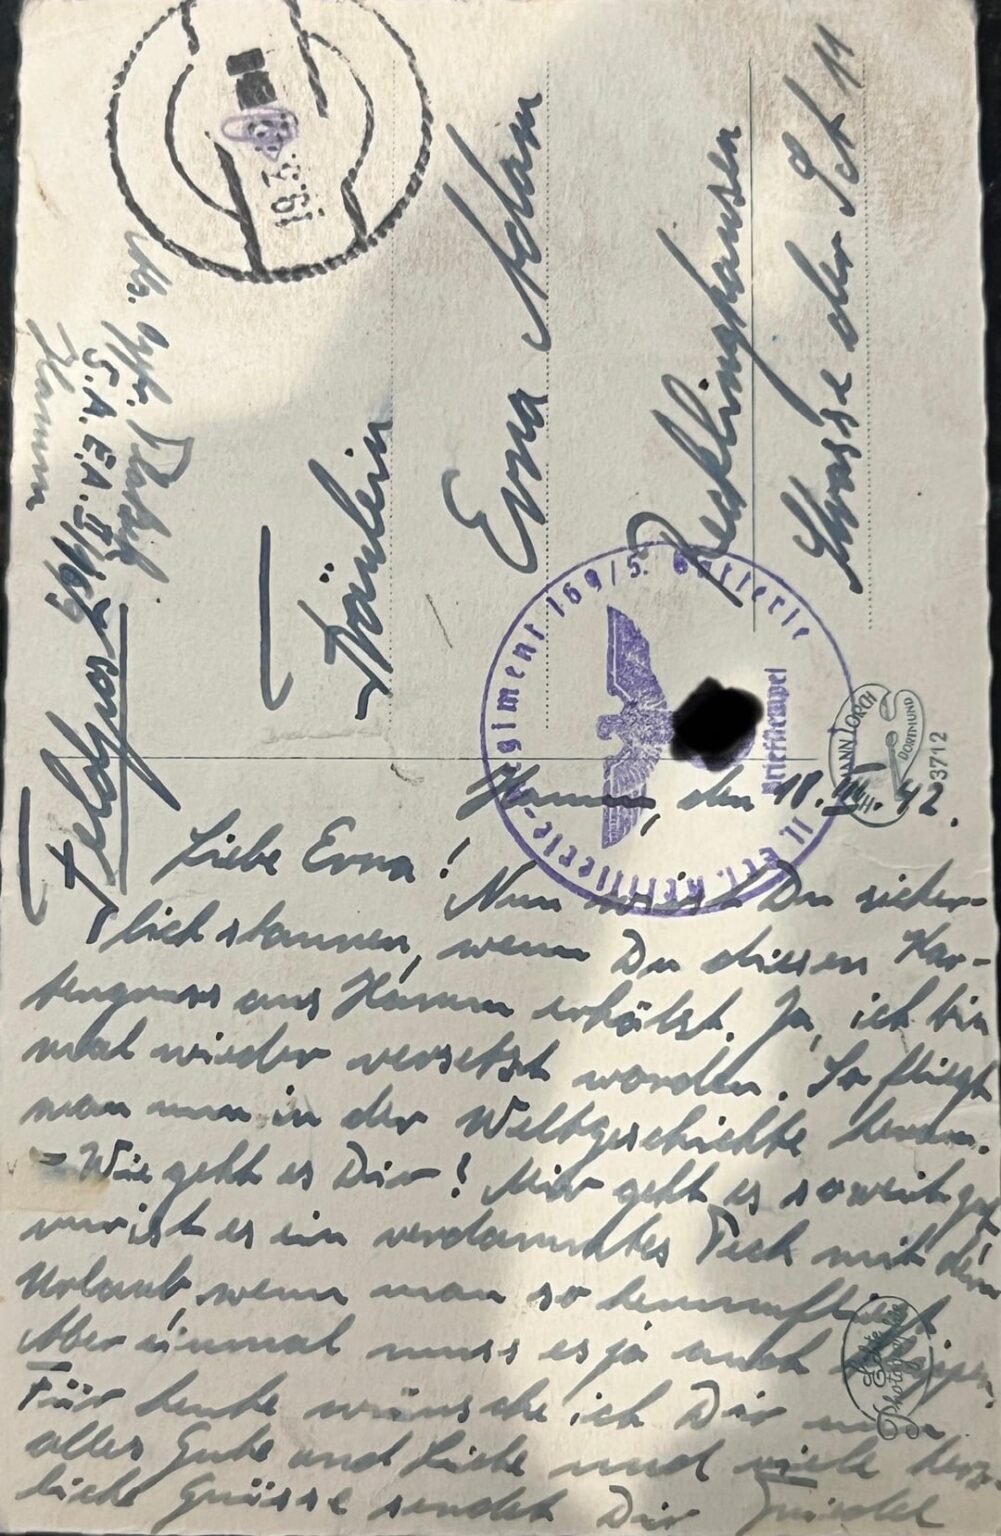 19.3.
Uffz.
S.A.E.A. II/
Hamm
Feldpost
Fräulein
Erna Adam
Recklinghausen
Strasse der SA 11
Artillerie-Regiment 169/5. Batterie
Briefstempel
DORTMUND
3712
Hamm, den 18. III. 42.
Liebe Erna!
Nun wirst Du sicher-
lich staunen, wenn Du diesen Kar-
tengruss aus Hamm erhälst. Ja, ich bin
mal wieder versetzt worden. So fliegt
man nun in der Weltgeschichte herum.
- Wie geht es Dir! Mir geht es soweit gut
nur ist es ein verdammtes Pech mit dem
Urlaub, wenn man so herumfliegt
Aber einmal muss es ja auch
Für heute wünsche ich Dir nun
alles Gute und Liebe und viele herz-
liche Grüsse sendet Dir Friedel
Echte
Photographie